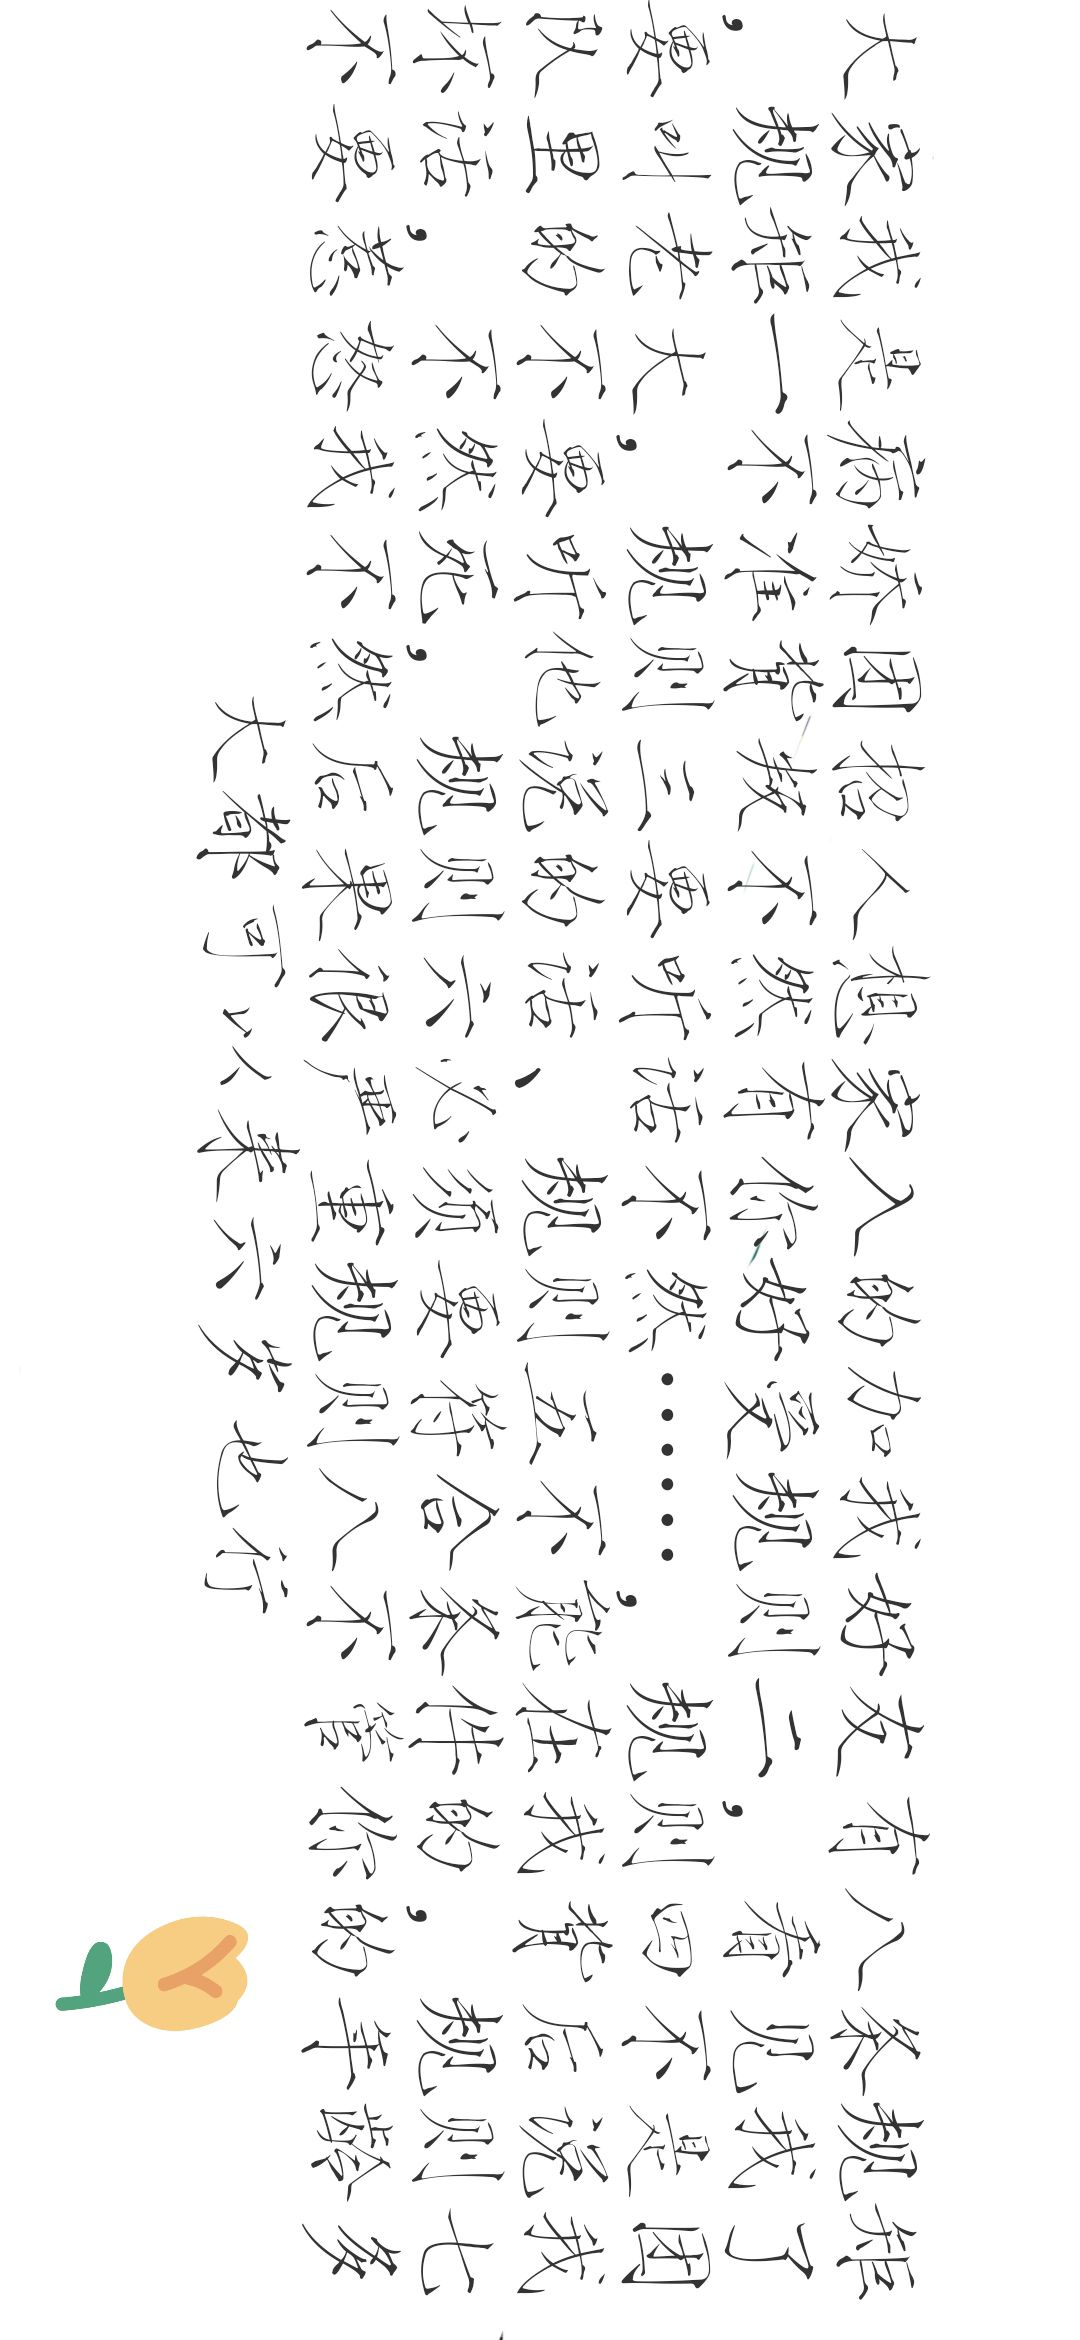 大家我是病娇团招人想家入的加我好友有八条规矩
，规矩一不准背叛不然有你好受规则二，看见我了
要叫老大，规则三要听话不然……，规则四不是团
队里的不要听他说的话、规则五不能在我背后说我
坏话，不然死，规则六必须要符合条件的，规则七
不要惹怒我不然后果很严重规则八不管你的年龄多
大都可以人来六岁也行